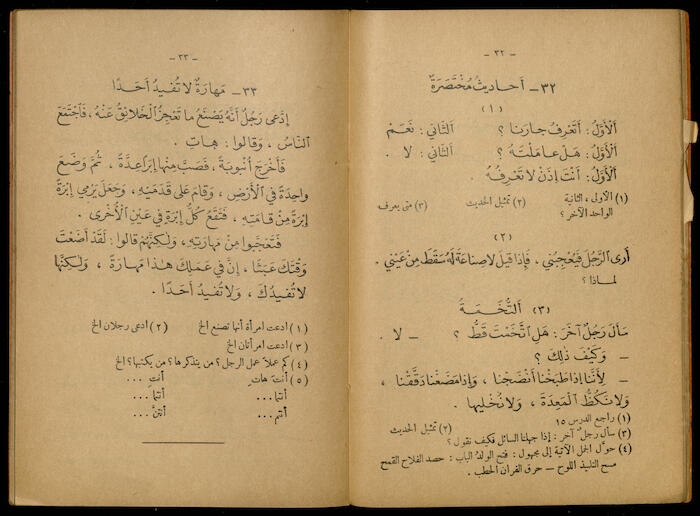 - ٣٢ -
٣٢ - أَحَادِيثُ مُخْتَصَرَةٌ
(١)
اَلْأَوَّلُ : أَتَعْرِفُ جارَنا ؟ اَلثاني : نَعَمْ
اَلْأَوَّلُ : هَلْ عامَلْتَهُ ؟ اَلثاني : لا .
اَلْأَوَّلُ : أَنْتَ إِذَنْ لا تَعْرِفُهُ .
(١) الأولى ، الثانية (٢) تمثيل الحديث (٣) متى يعرف
الواحد الآخر ؟
(٢)
أَرى الرَّجُلَ فَيُعْجِبُني ، فَإِذا قيلَ لا صِناعَةَ لَهُ سَقَطَ مِنْ عَيْني .
لماذا ؟
(٣) اَلتُّخَمَةُ
سَأَلَ رَجُلٌ آخَرَ : هَلِ اتَّخَمْتَ قَطُّ ؟ — لا .
— وَكَيْفَ ذلِكَ ؟
— لِأَنَّنا إِذا طَبَخْنا أَنْضَجْنا ، وَإِذا مَضَغْنا دَقَّقْنا ،
وَلا نَكُظُّ الْمَعِدَةَ ، وَلا نُخْليها .
(١) راجع الدرس ١٥ (٢) تمثيل الحديث
(٣) سأل رجلٌ آخر : إذا جهلنا السائل فكيف نقول ؟
(٤) حوّل الجمل الآتية إلى مجهول : فتح الولدُ الباب : حصد الفلاح القمح
مسح التلميذ اللوح — حرق الفران الحطب .
- ٣٣ -
٣٣ - مَهارَةٌ لا تُفيدُ أَحَدًا
اِدَّعى رَجُلٌ أَنَّهُ يَصْنَعُ ما تَعْجِزُ الْخَلائِقُ عَنْهُ ، فَاجْتَمَعَ
النّاسُ ، وَقالُوا : هاتِ .
فَأَخْرَجَ أُنْبوبَةً ، فَصَبَّ مِنْها إِبَرًا عِدَّةً ، ثُمَّ وَضَعَ
واحِدَةً في الْأَرْضِ ، وَقامَ عَلى قَدَمَيْهِ ، وَجَعَلَ يَرْمي إِبْرَةً
إِبْرَةً مِنْ قامَتِهِ ، فَتَقَعُ كُلُّ إِبْرَةٍ في عَيْنِ الْأُخْرى .
فَتَعَجَّبُوا مِنْ مَهارَتِهِ ، وَلكِنَّهُمْ قالُوا : لَقَدْ أَضَعْتَ
وَقْتَكَ عَبَثًا ، إِنَّ في عَمَلِكَ هذا مَهارَةً ، وَلكِنَّها
لا تُفيدُكَ ، وَلا تُفيدُ أَحَدًا .
(١) ادعت امرأة أنها تصنع الخ (٢) ادعى رجلان الخ
(٣) ادعت امرأتان الخ
(٤) كم عملاً عمل الرجل ؟ من يتذكرها ؟ من يكتبها ؟ الخ
(٥) أنتَ هات أنتِ ...
أنتما ... أنتما ...
أنتم ... أنتنَّ ...